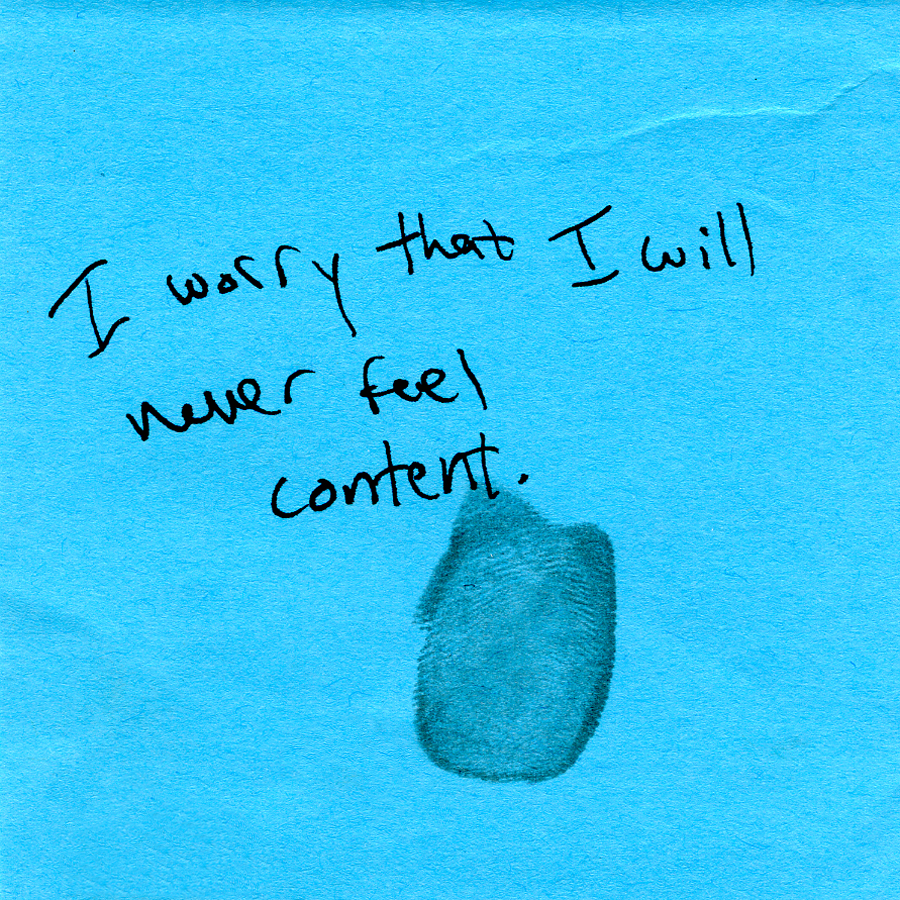 I worry that I will
never feel
content.